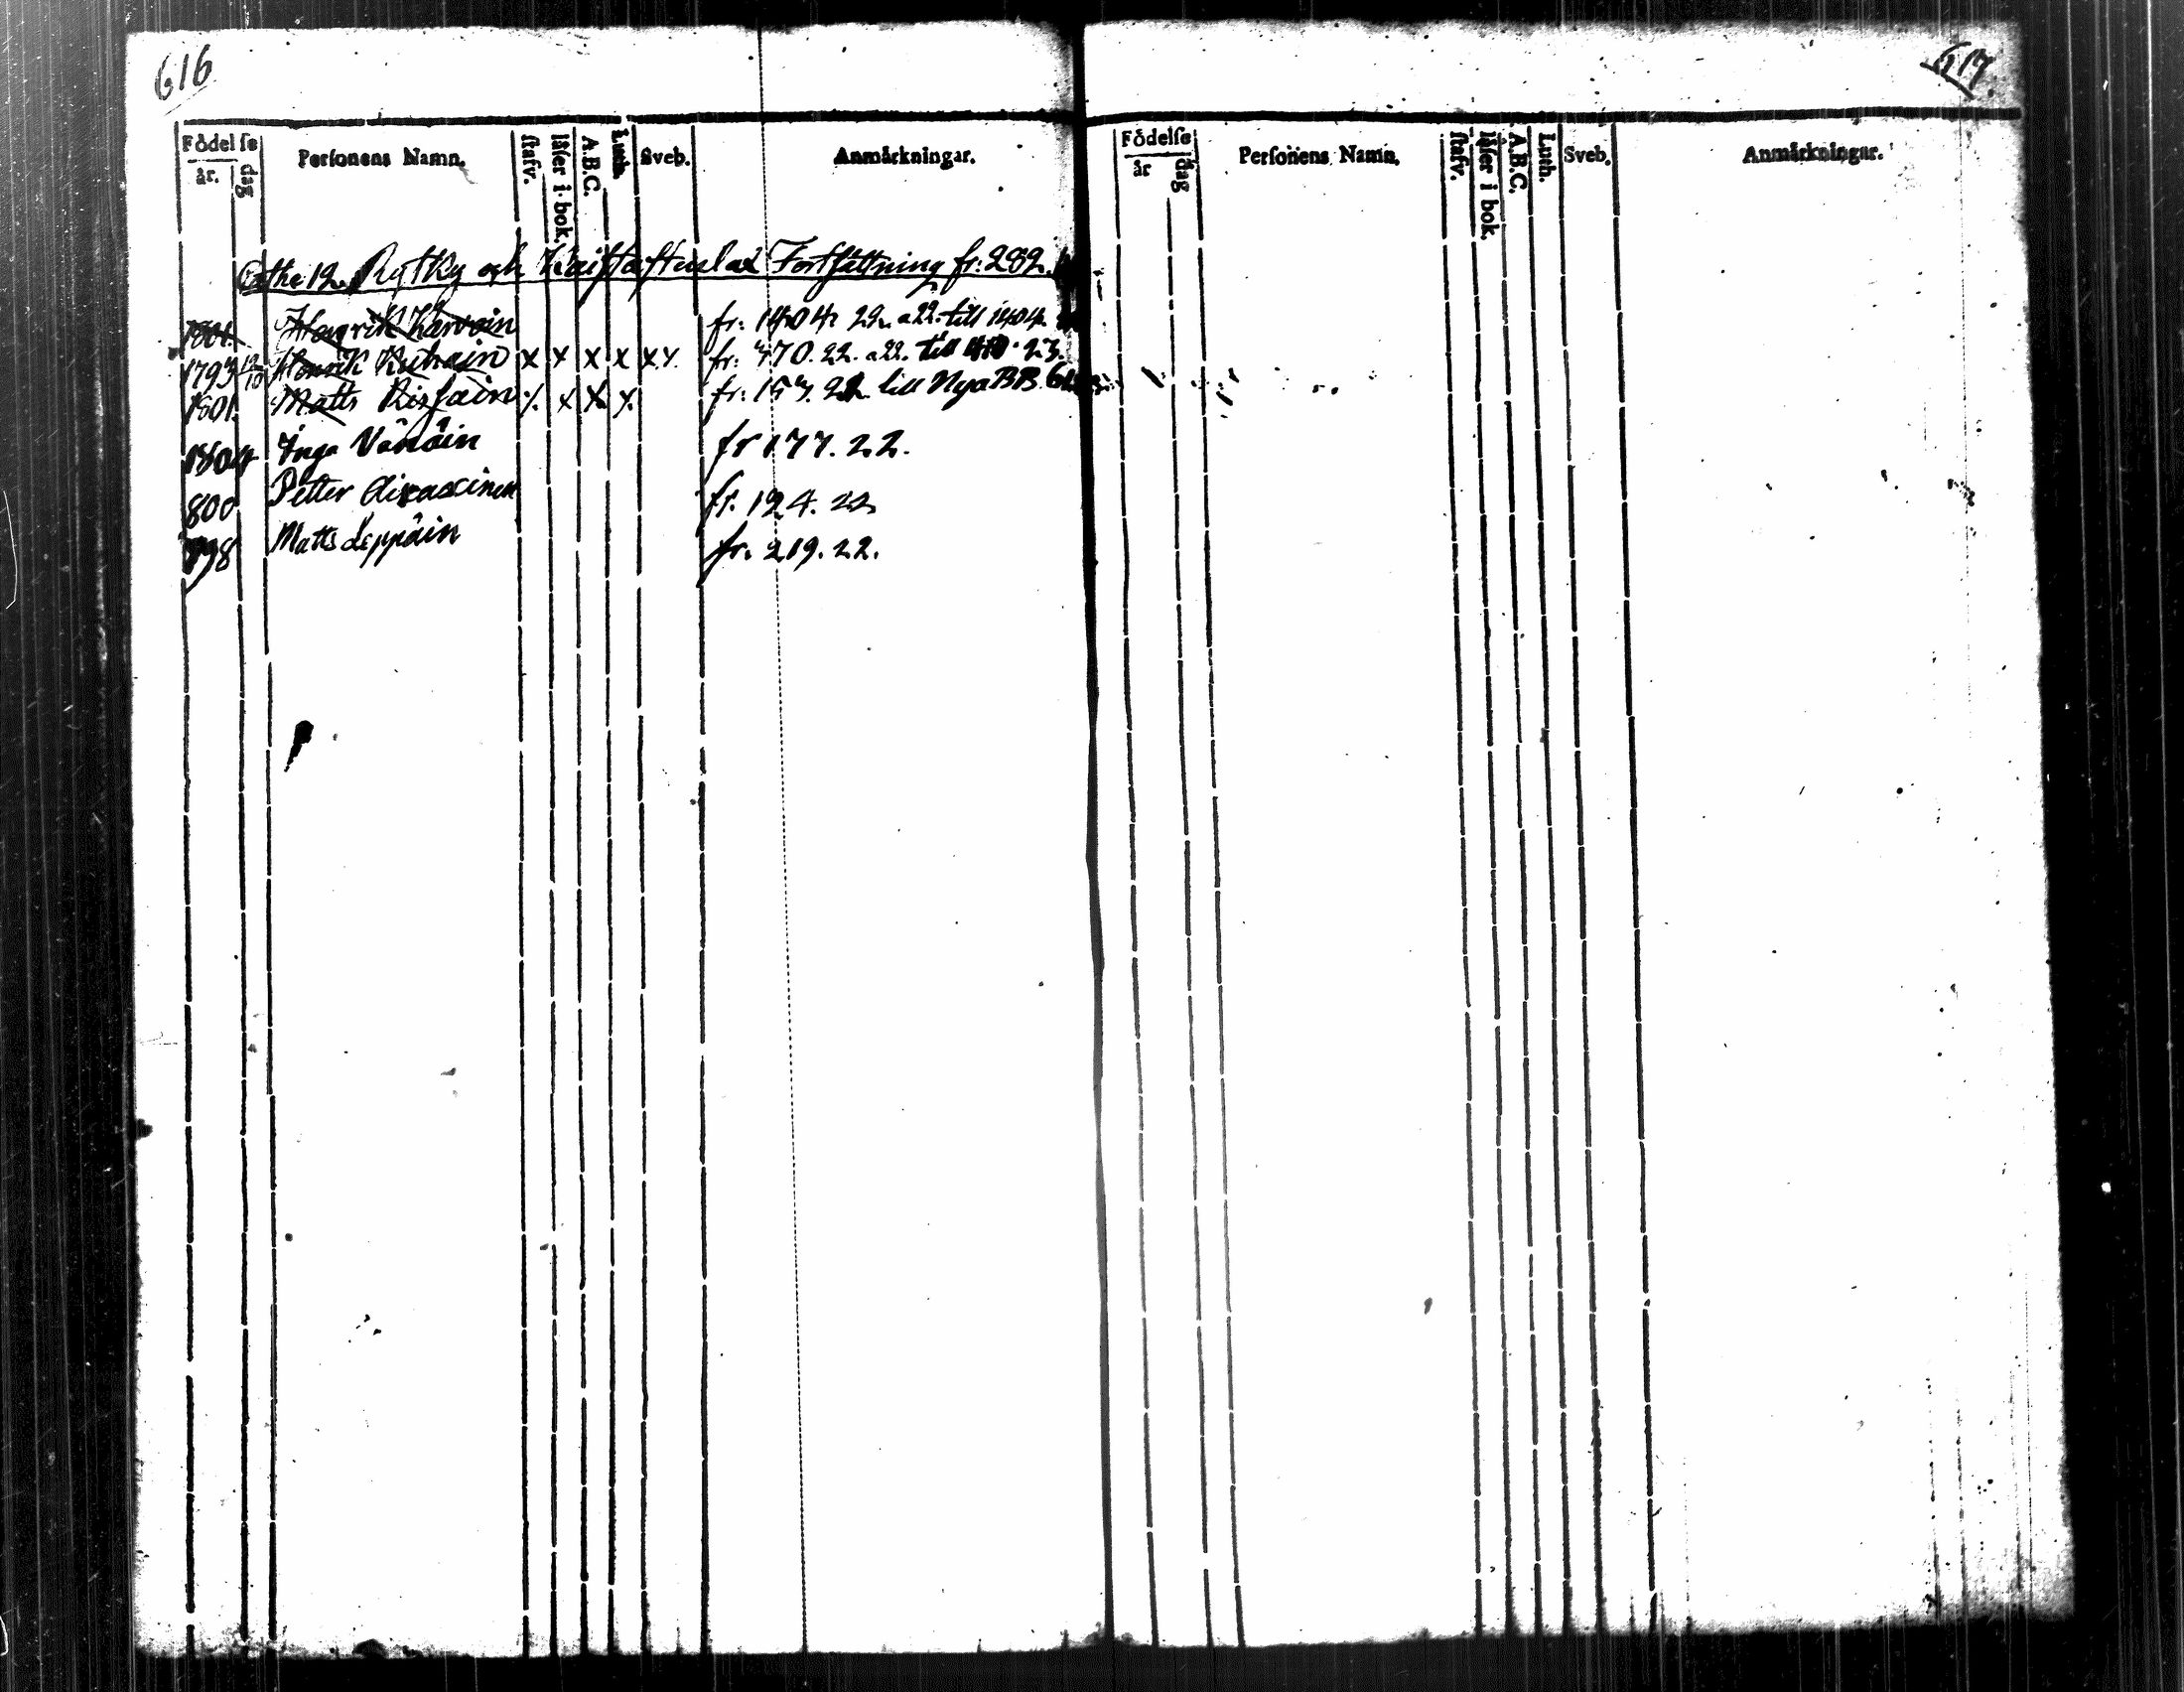 616
Födelse
år. dag
Personens Namn.
stafv.
läser i bok.
A.B.C.
Luth.
Sveb.
Anmärkningar.
12. Rytky och Fortsättning fr: 282.
1801. Henrik Karvain fr: 1404 22. a22. till 1404.
1793 12/10 Henrik x x x x x x. fr: 470. 22. a 22. till 23.
1801. Matts x x x x. fr: 157. 22. till Nya BB.
1804 Inga Vänäin fr 177. 22.
800 Petter fr. 124. 22
798 Matts Leppäin fr. 219. 22.
617.
Födelse
år dag
Personens Namn.
stafv.
läser i bok.
A.B.C.
Luth.
Sveb.
Anmärkningar.